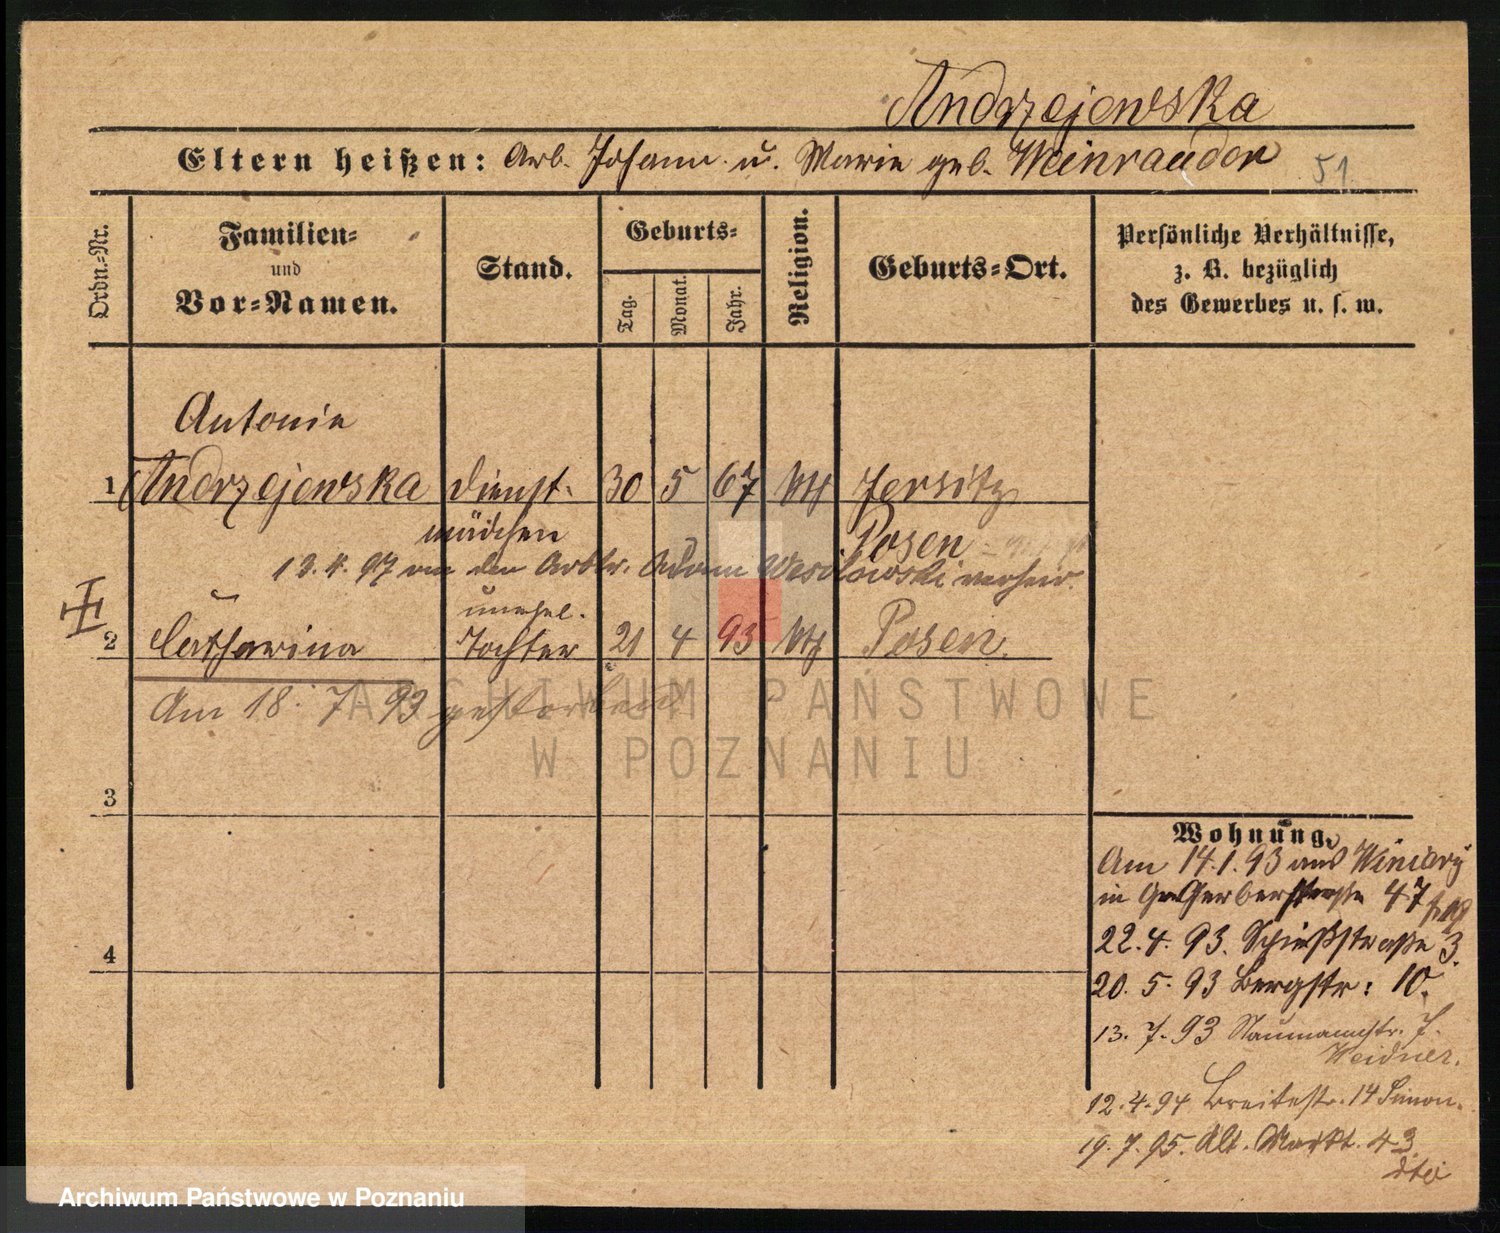 Andrzejewska
Eltern heißen: Arb. Johann u. Marie geb. Weinrauder
51
Ordn.-Nr.
Familien-
und
Vor-Namen.
Stand.
Geburts-
Tag.
Monat.
Jahr.
Religion.
Geburts-Ort.
Persönliche Verhältnisse,
z. B. bezüglich
des Gewerbes u. s. w.
Antonie
1 Andrzejewska Dienst- 30 5 67 kth Jersitz
mädchen Posen
13. 4. 97 an den Arbtr. Adam Wasilewski verheir.
unehel.
2 Catharina Tochter 21 4 93 kth Posen.
Am 18. 7 93 gestorben
ARCHIWUM PAŃSTWOWE
W POZNANIU
3
4
Wohnung.
Am 14.1.93 aus Winiary
in Gr. Gerberstraße 47
22. 4. 93. Schießstraße 3.
20. 5. 93 Bergstr: 10.
13. 7. 93 Naumannstr. 7.
Weidner.
12. 4. 94 Breitestr. 14 Simon.
19. 7. 95. Alt. Markt. 43
dto
Archiwum Państwowe w Poznaniu